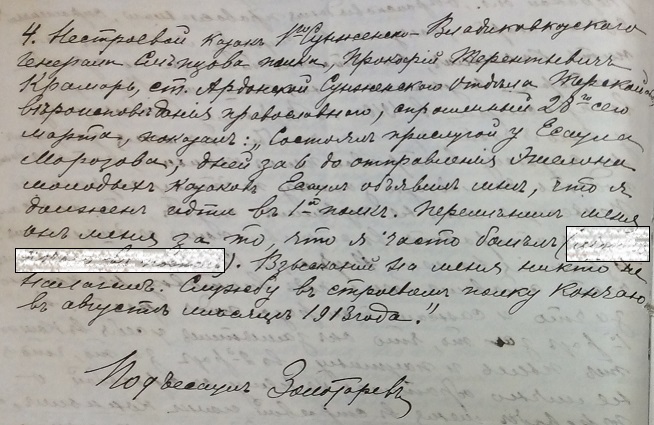 4. Нестроевой казакъ 1го Сунженско-Владикавказского
Генерала Слѣпцова полка, Прокофій Терентьевичъ
Крамарь, ст. Ардонской Сунженского отдѣла Терской обл.
вѣроисповѣданія православного, спрошенный 28го сего
марта, показалъ: „Состоялъ прислугой у Есаула
Морозова; дней за 6 до отправленія Эшелона
молодыхъ казаковъ Есаулъ объявилъ мнѣ, что я
долженъ идти въ 1й полкъ. Перемѣнилъ меня
онъ меня за то, что я часто болѣлъ (
). Взысканій на меня никто не
налагалъ. Службу въ строевомъ полку кончаю
въ августѣ мѣсяцѣ 1913 года."
Подъесаулъ Золотаревъ